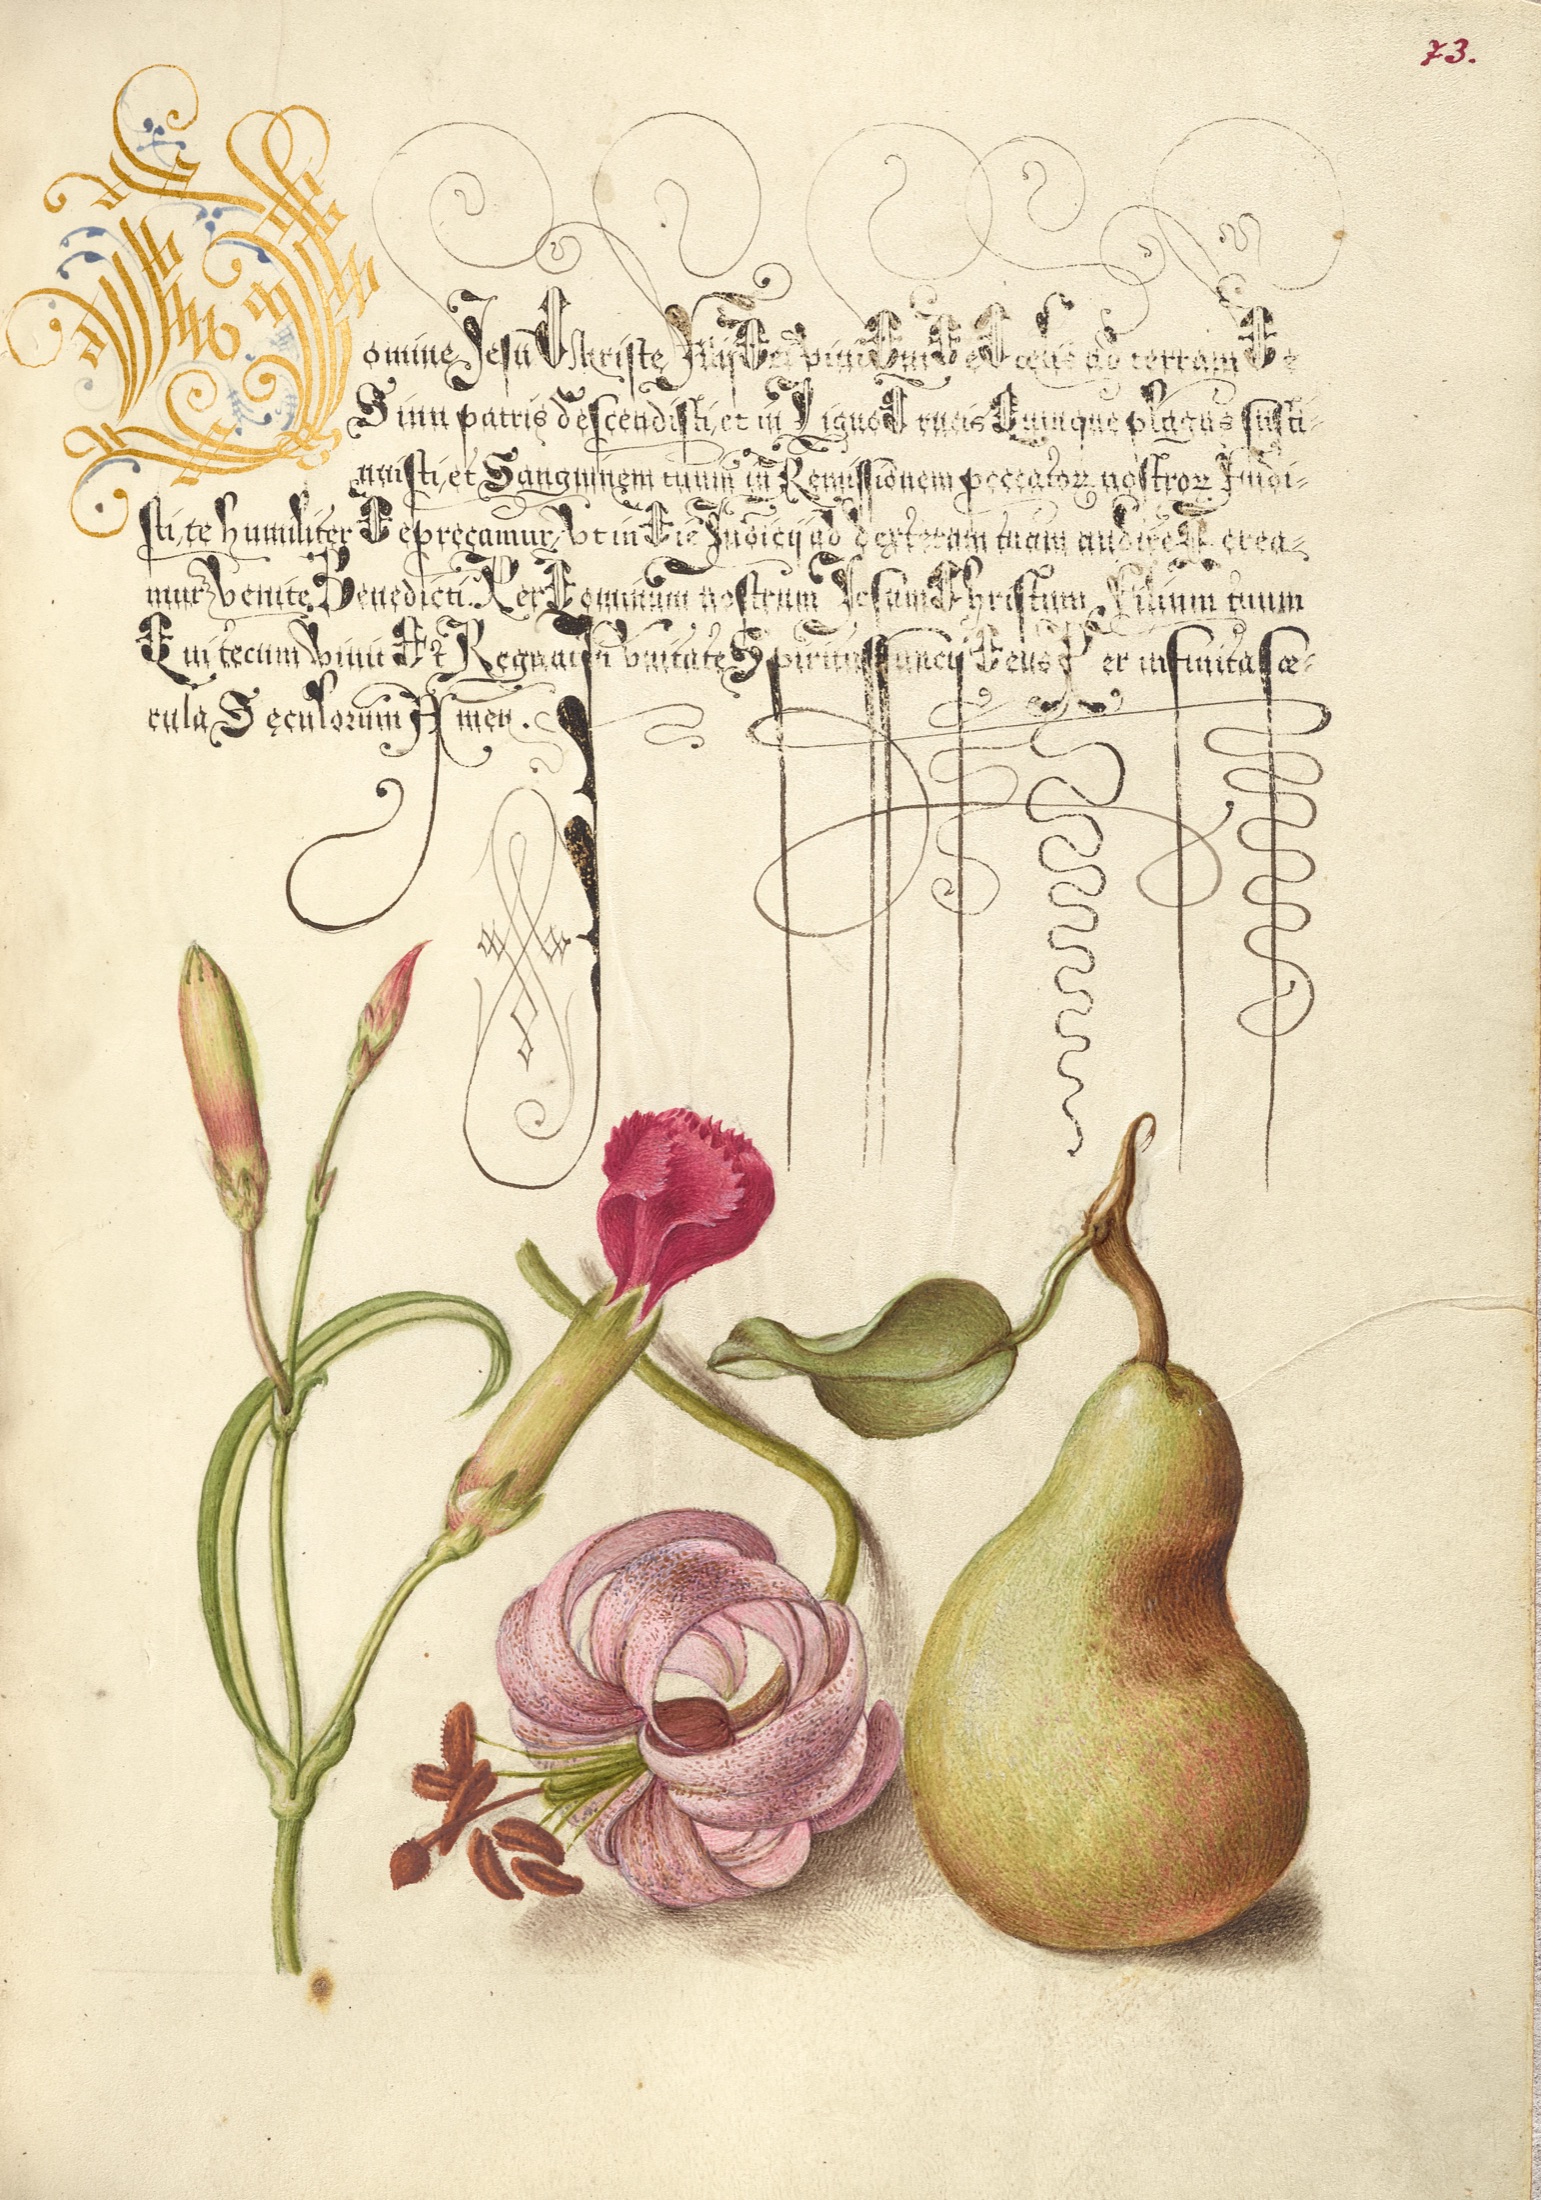 73.
Domine Jesu Christe Filij Dei vivi Qui De Celis ad terram De
Sinu patris descendisti, et in Ligno Crucis Quinque plagas susti-
nuisti, et Sanguinem tuum in Remissionem peccator nostror fudi-
sti, te humiliter Deprecamur, Vt in Die Judicij ad dexteram tuam audire Merea-
mur, Venite Benedicti. Per Dominum nostrum Jesum Christum Filium tuum
Qui tecum vivit Et Regnat in Vnitate Spiritus Sancti Deus Per infinita sæ-
cula Seculorum Amen.